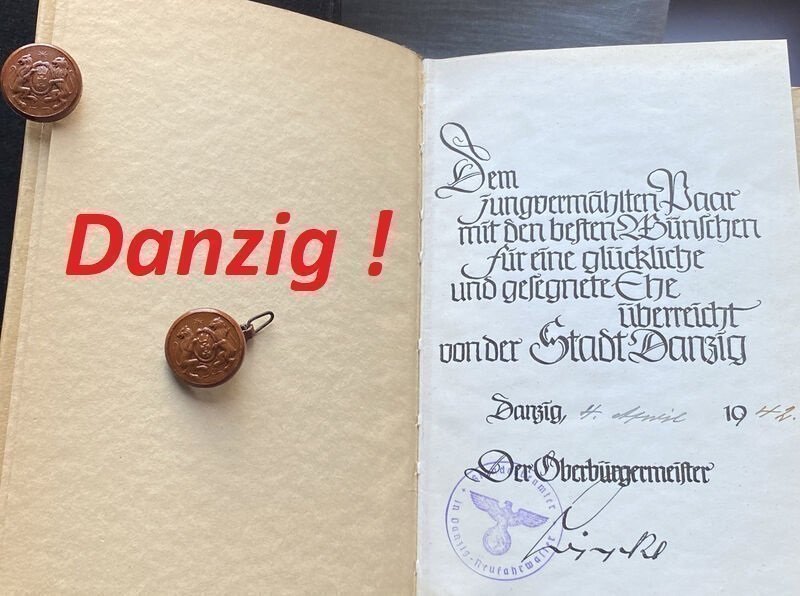 Danzig !
Dem
jungvermählten Paar
mit den besten Wünschen
für eine glückliche
und gesegnete Ehe
überreicht
von der Stadt Danzig
Danzig, 4. April 1942.
Der Oberbürgermeister
in Danzig-Neufahrwasser